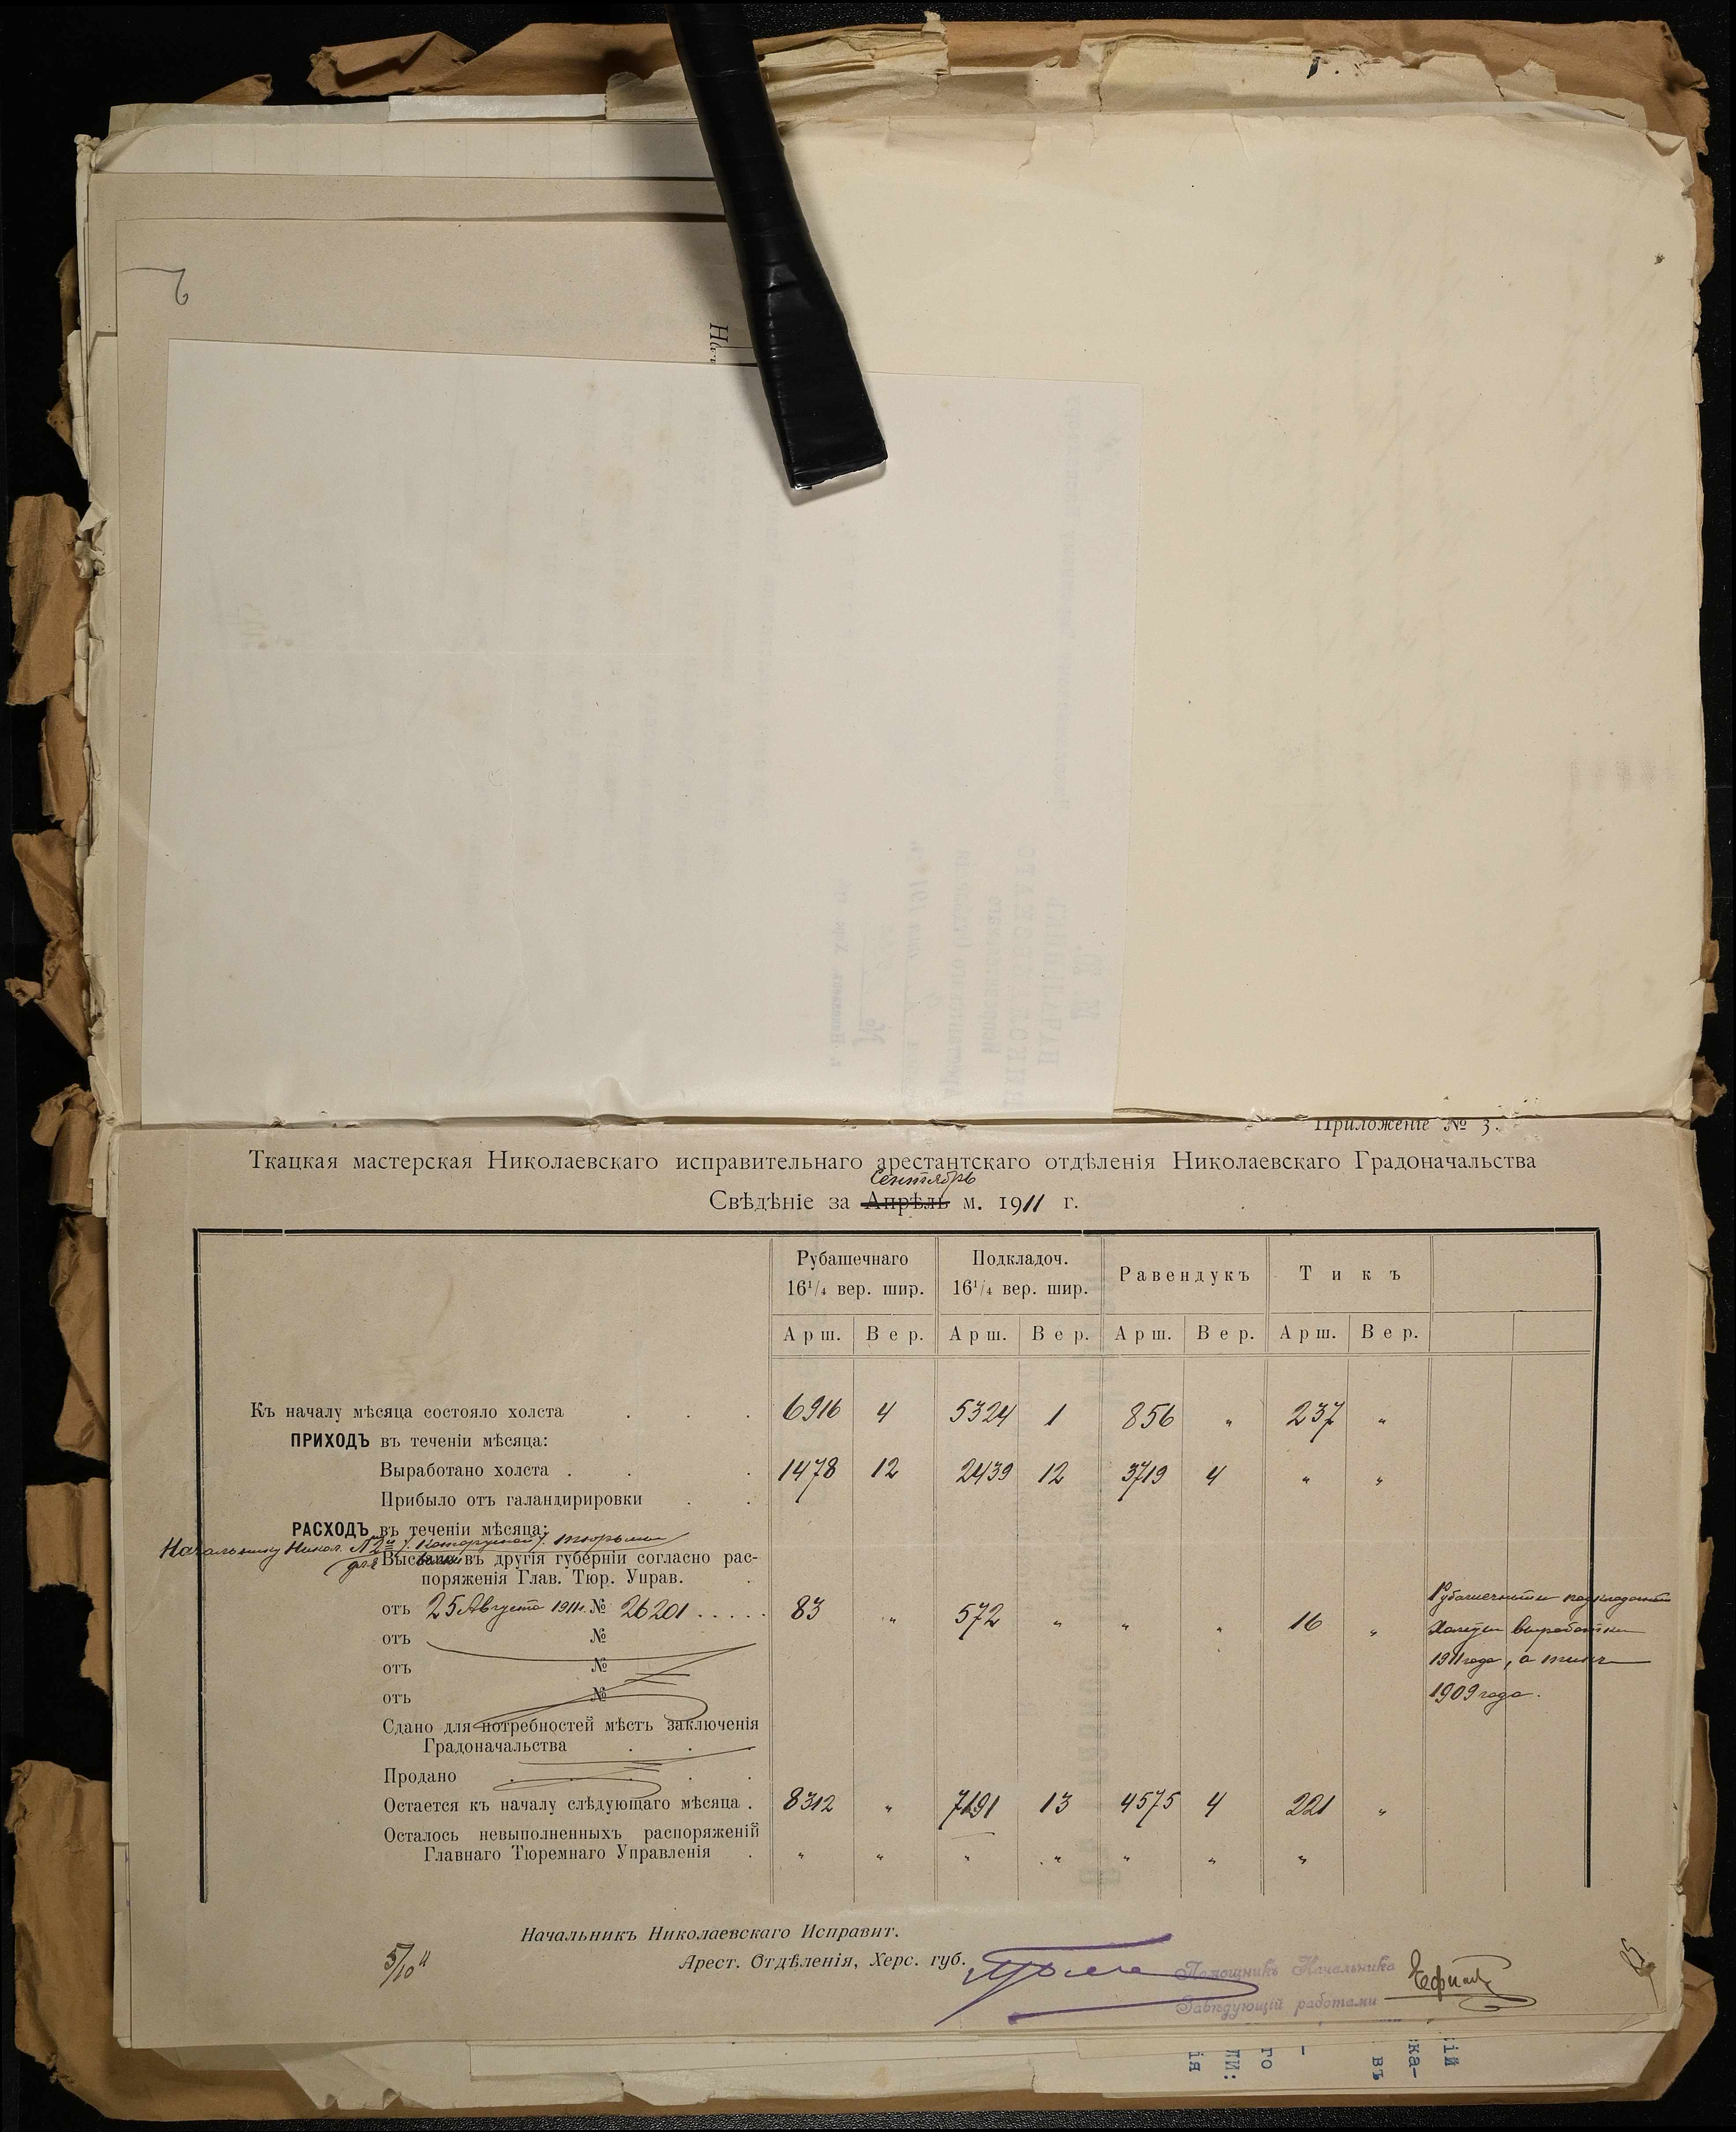 Приложеніе № 3.
Ткацкая мастерская Николаевскаго исправительнаго арестантскаго отдѣленія Николаевскаго Градоначальства
Сентябрь
Свѣдѣніе за Апрѣль м. 1911 г.
Рубашечнаго 16¹/₄ вер. шир. Подкладоч. 16¹/₄ вер. шир. Равендукъ Тикъ
Арш. Вер. Арш. Вер. Арш. Вер. Арш. Вер.
Къ началу мѣсяца состояло холста . . . 6916 4 5324 1 856 " 237 "
ПРИХОДЪ въ теченіи мѣсяца:
Выработано холста . . . 1478 12 2439 12 3719 4 " "
Прибыло отъ галандирировки . .
РАСХОДЪ въ теченіи мѣсяца:
Начальнику Никол. № 2й /. каторжной /. тюрьмы
для Высылки въ другія губерніи согласно рас-
поряженія Глав. Тюр. Управ. .
отъ 25 Августа 1911 г. № 26201 . . . . . 83 " 572 " " " 16 "
отъ №
отъ №
отъ №
Рубашечный и подкладочный
холсты выработки
1911 года, а тикъ
1909 года.
Сдано для потребностей мѣстъ заключенія
Градоначальства . . .
Продано . . . .
Остается къ началу слѣдующаго мѣсяца . 8312 " 7191 13 4575 4 221 "
Осталось невыполненныхъ распоряженій
Главнаго Тюремнаго Управленія . " " " " " " "
Начальникъ Николаевскаго Исправит.
Арест. Отдѣленія, Херс. губ.
5/10 11
Помощникъ Начальника
Завѣдующій работами
ія
ли:
го
въ
ка-
ій